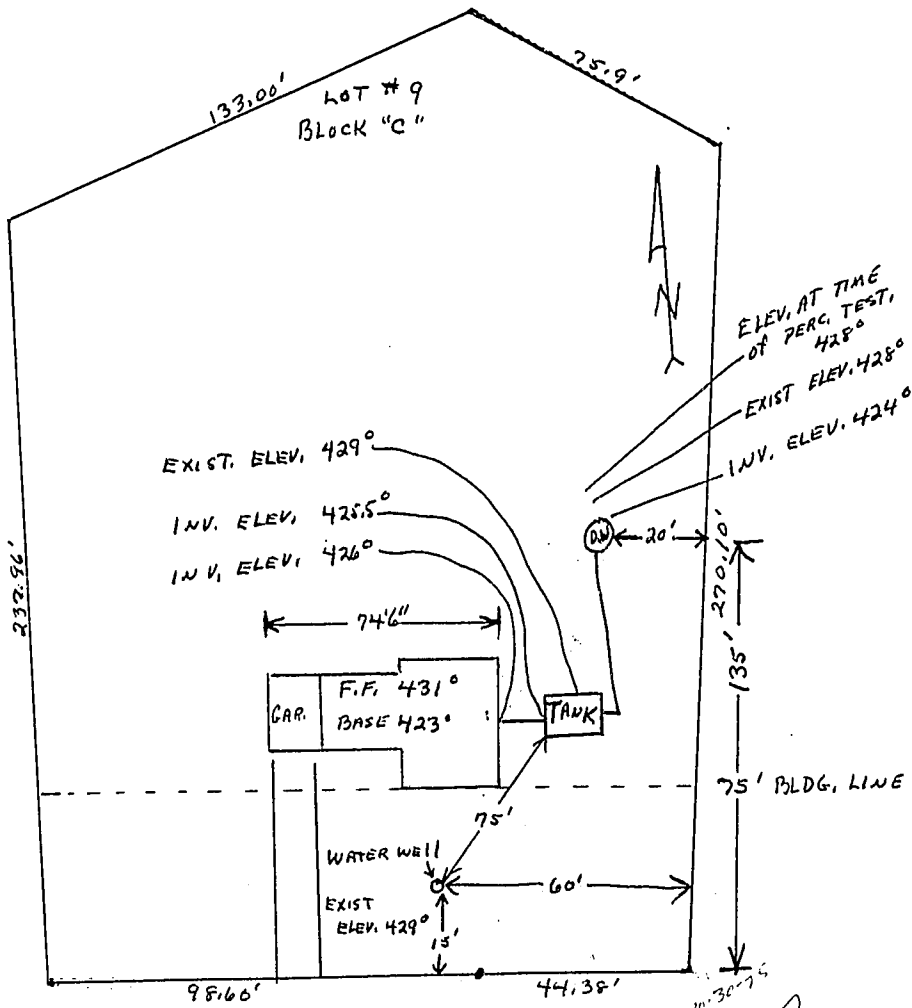 133.00'
75.9'
LOT # 9
BLOCK "C"
N
ELEV. AT TIME
of PERC. TEST,
428°
EXIST ELEV. 428°
INV. ELEV. 424°
EXIST. ELEV. 429°
INV. ELEV. 425.5°
INV. ELEV. 426°
D.W
20'
237.96'
270.10'
135'
74'6"
GAR.
F.F. 431°
BASE 423°
TANK
75' BLDG. LINE
75'
WATER WELL
60'
EXIST
ELEV. 429°
15'
98.60'
44.38'